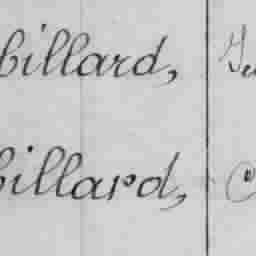 billard,
billard,